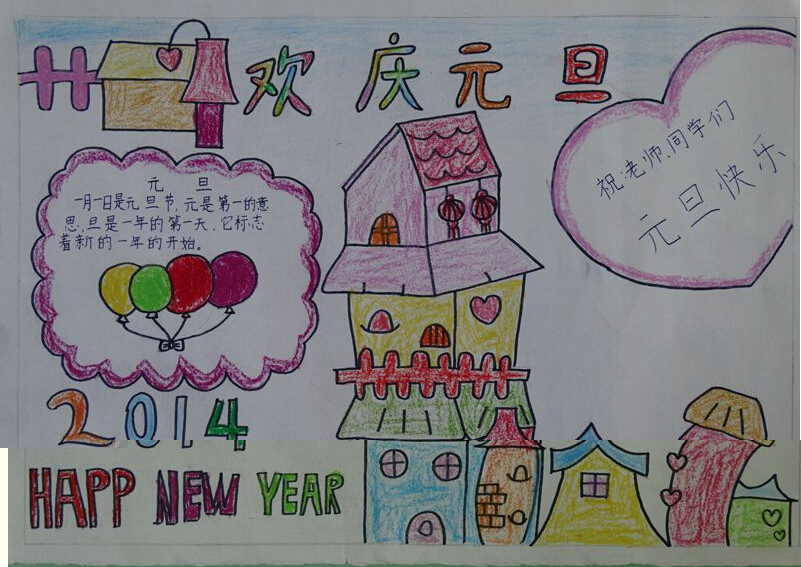 欢庆元旦
元旦
一月一日是元旦节,元是第一的意
思,旦是一年的第一天,它标志
着新的一年的开始。
祝:老师、同学们
元旦快乐
2014
HAPP NEW YEAR